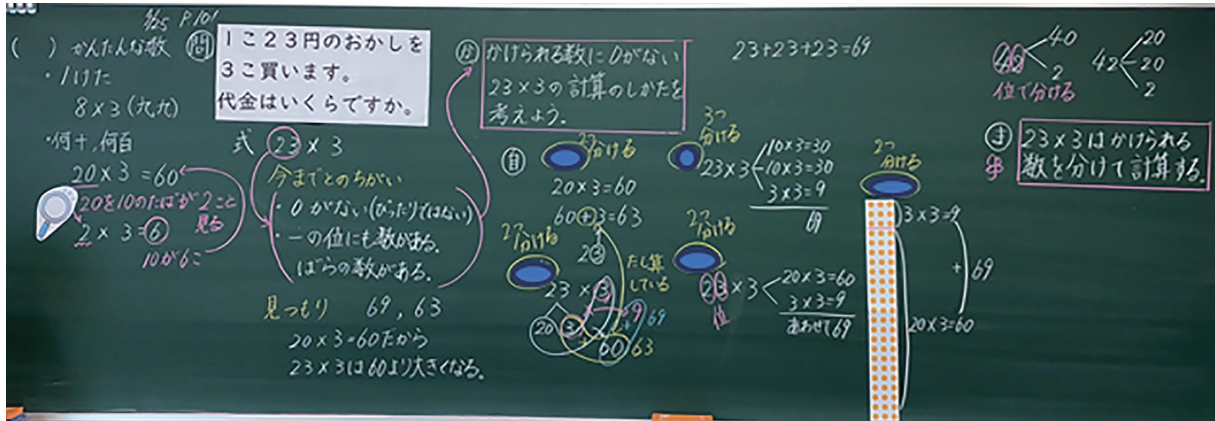 9/25 P.101
( ) かんたんな数
・1けた
8×3(九九)
・何十,何百
20×3=60
20を10のたばが2こと
見る
2×3=6
10が6こ
問
1こ23円のおかしを
3こ買います。
代金はいくらですか。
式 23×3
今までとのちがい
・0がない(ぴったりではない)
・一の位にも数がある。
ばらの数がある。
見つもり 69, 63
20×3=60だから
23×3は60より大きくなる。
かけられる数に0がない
23×3の計算のしかたを
考えよう。
23+23+23=69
自
2つ分ける
20×3=60
60+3=63
23
2つ
分ける
23×3
20 3
60 63
たし算
している
3つ
分ける
23×3
10×3=30
10×3=30
3×3=9
69
2つ
分ける
23×3
位
20×3=60
3×3=9
あわせて69
2つ
分ける
3×3=9
+ 69
20×3=60
42
40
2
位で分ける
42
20
20
2
ま
23×3はかけられる
数を分けて計算する。